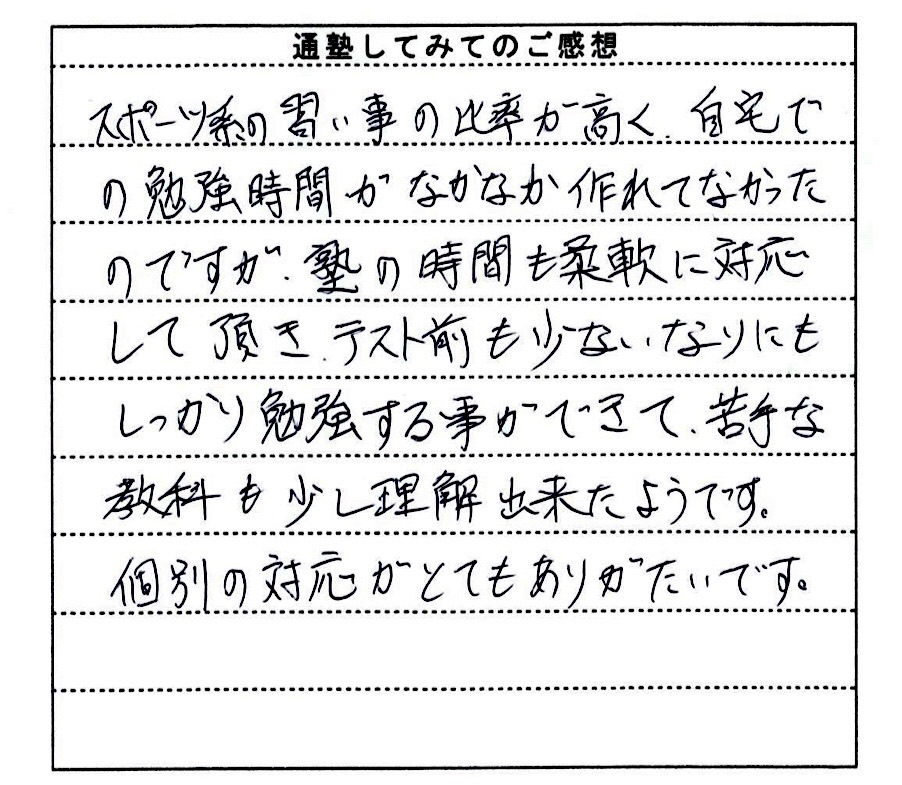 通塾してみてのご感想
スポーツ系の習い事の比率が高く、自宅で
の勉強時間がなかなか作れてなかった
のですが、塾の時間も柔軟に対応
して頂き、テスト前も少ないなりにも
しっかり勉強する事ができて、苦手な
教科も少し理解出来たようです。
個別の対応がとてもありがたいです。